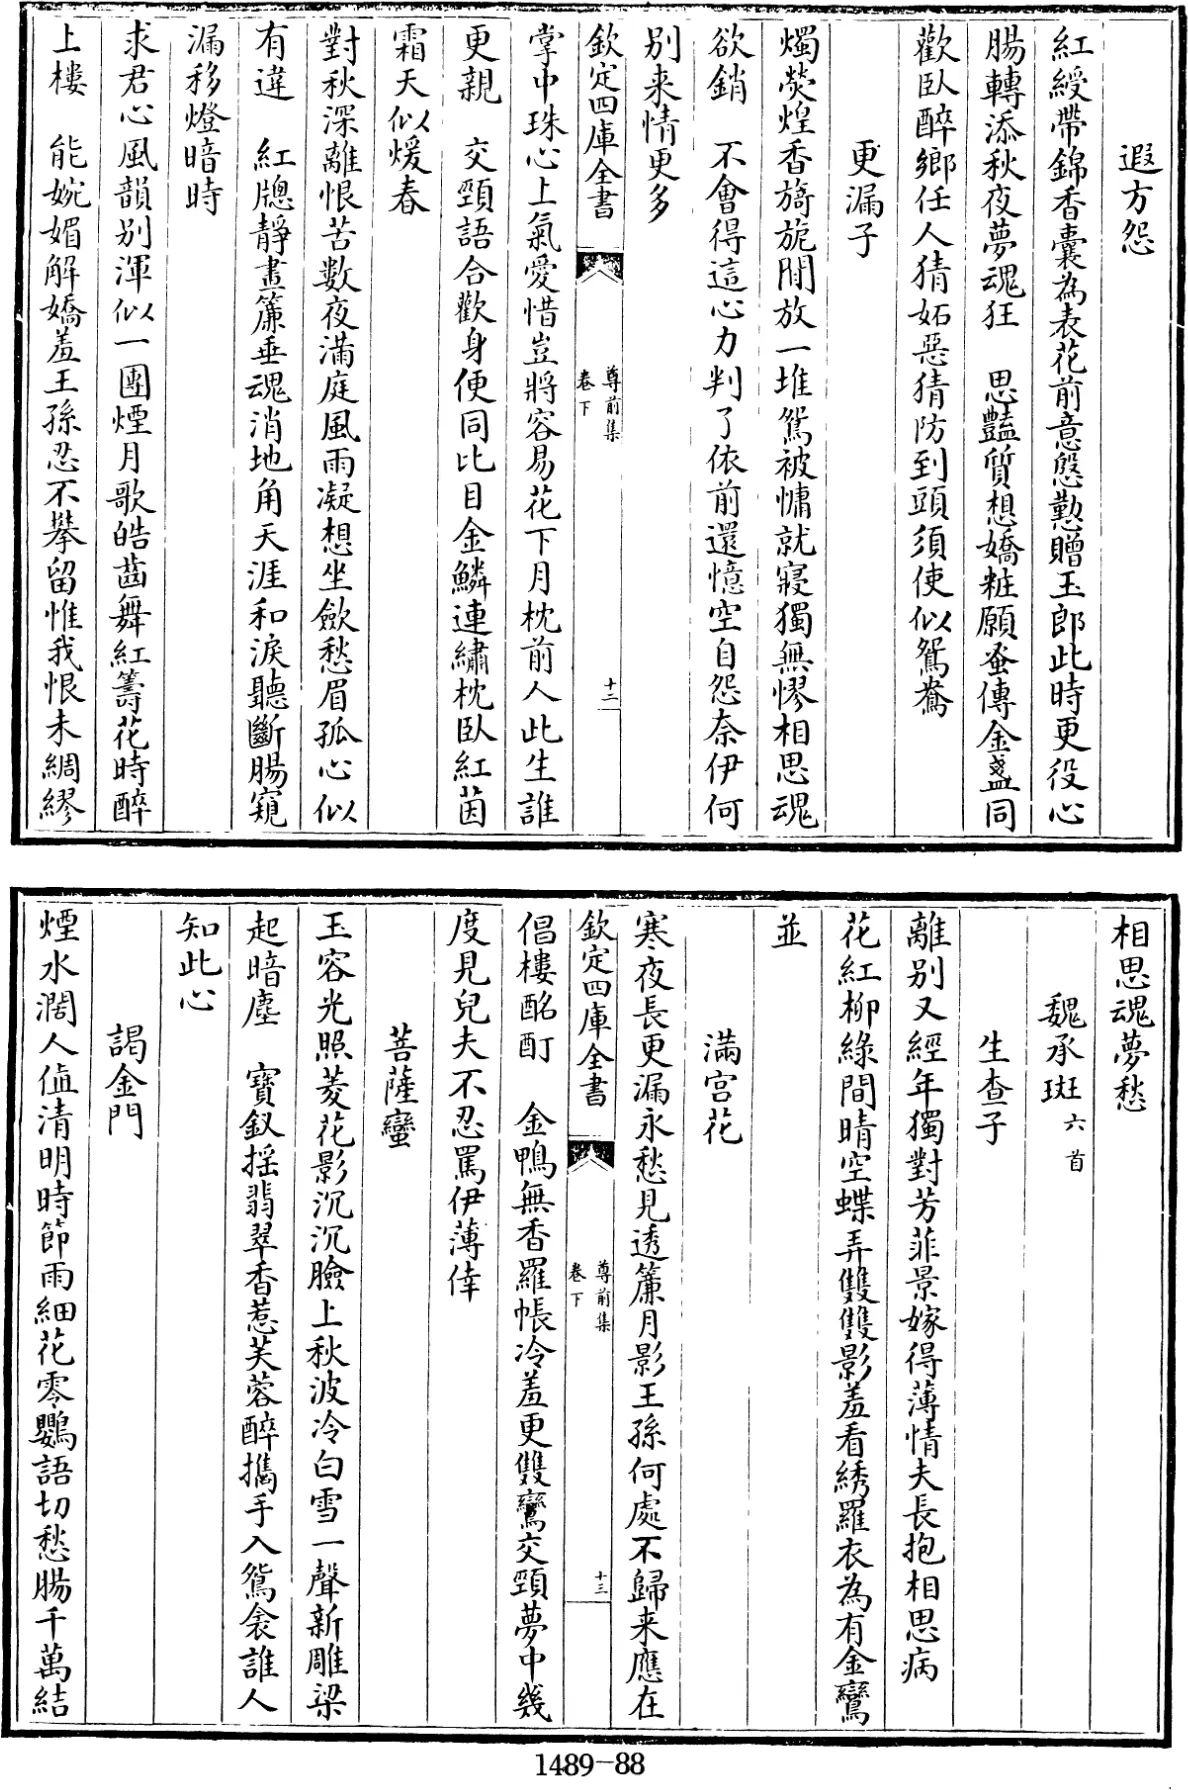 遐方怨
紅綬帶錦香囊為表花前意慇懃贈玉郎此時更役心
腸轉添秋夜夢魂狂　思豔質想嬌粧願蚤傳金盞同
歡臥醉鄉任人猜妬惡猜防到頭須使似鴛鴦
更漏子
燭熒煌香旖旎閒放一堆鴛被慵就寢獨無憀相思魂
欲銷　不會得這心力判了依前還憶空自怨奈伊何
别来情更多
欽定四庫全書
尊前集
卷下
十二
掌中珠心上氣愛惜豈將容易花下月枕前人此生誰
更親　交頸語合歡身便同比目金鱗連繡枕臥紅茵
霜天似煖春
對秋深離恨苦數夜滿庭風雨凝想坐歛愁眉孤心似
有違　紅牎靜畫簾垂魂消地角天涯和淚聽斷腸窺
漏移燈暗時
求君心風韻别渾似一團煙月歌皓齒舞紅籌花時醉
上樓　能婉媚解嬌羞王孫忍不攀留惟我恨未綢繆
相思魂夢愁
魏承班六首
生查子
離别又經年獨對芳菲景嫁得薄情夫長抱相思病
花紅柳綠間晴空蝶弄雙雙影羞看綉羅衣為有金鸞
並
滿宮花
寒夜長更漏永愁見透簾月影王孫何處不歸来應在
欽定四庫全書
尊前集
卷下
十三
倡樓酩酊　金鴨無香羅帳冷羞更雙鸞交頸夢中幾
度見兒夫不忍罵伊薄倖
菩薩蠻
玉容光照菱花影沉沉臉上秋波冷白雪一聲新雕梁
起暗塵　寶釵摇翡翠香惹芙蓉醉攜手入鴛衾誰人
知此心
謁金門
煙水濶人值清明時節雨細花零鸎語切愁腸千萬結
1489-88